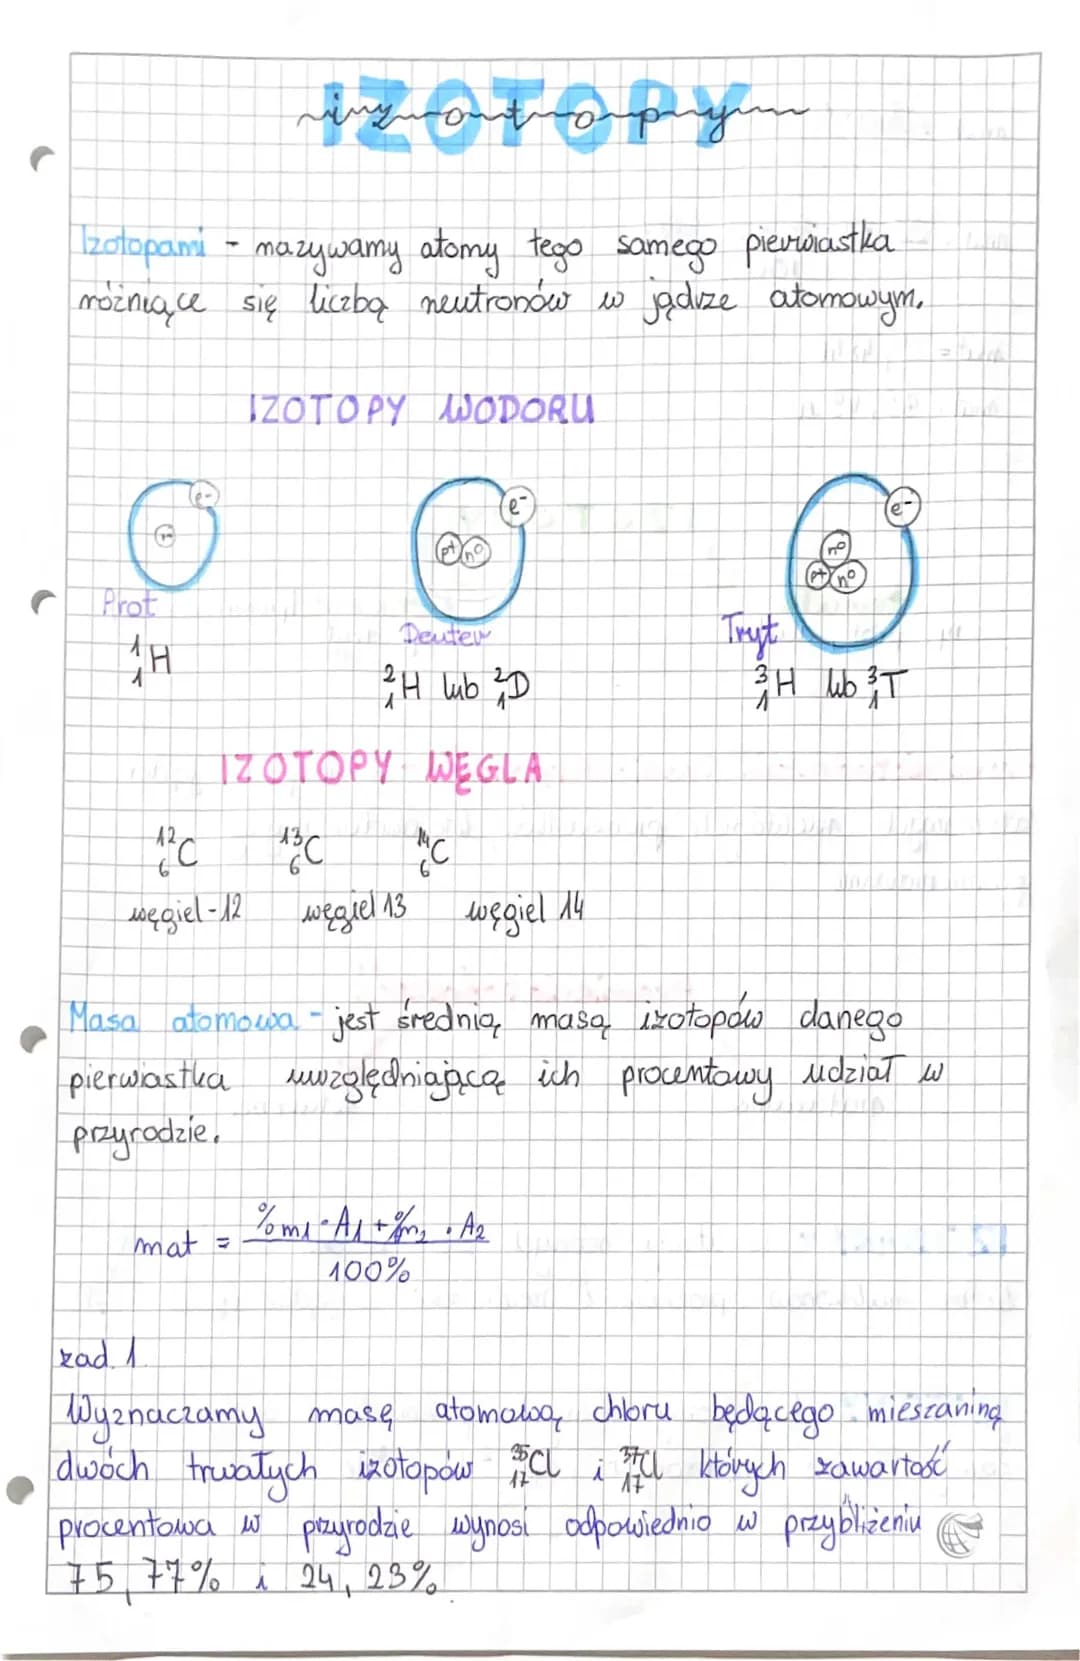 IZOTOPY
izotopy
Izotopami - nazywamy atomy tego samego pierwiastka
różniące się liczbą neutronów w jądrze atomowym.
IZOTOPY WODORU
e-
e-
e-
p+ n0
n0
p+ n0
Prot
Deuter
Tryt
¹₁H
²₁H lub ²₁D
³₁H lub ³₁T
IZOTOPY WĘGLA
¹²₆C ¹³₆C ¹⁴₆C
węgiel-12 węgiel 13 węgiel 14
Masa atomowa - jest średnią masą izotopów danego
pierwiastka uwzględniającą ich procentowy udział w
przyrodzie.
mat = %m1 · A1 + %m2 · A2
100%
zad. 1
Wyznaczamy masę atomową chloru będącego mieszaniną
dwóch trwałych izotopów ³⁵₁₇Cl i ³⁷₁₇Cl których zawartość
procentowa w przyrodzie wynosi odpowiednio w przybliżeniu
75,77% i 24,23%